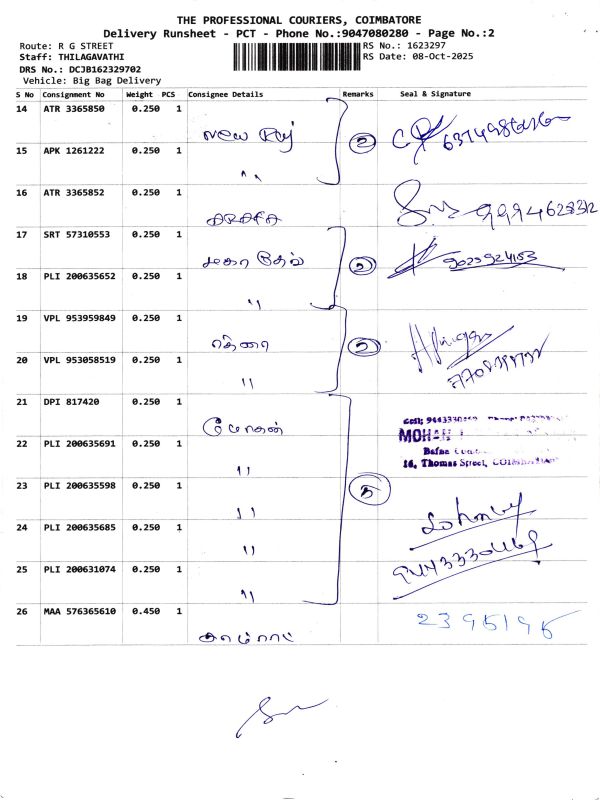 THE PROFESSIONAL COURIERS, COIMBATORE
Delivery Runsheet - PCT - Phone No.:9047080280 - Page No.:2
Route: R G STREET
RS No.: 1623297
Staff: THILAGAVATHI
RS Date: 08-Oct-2025
DRS No.: DCJB162329702
Vehicle: Big Bag Delivery
S No Consignment No Weight PCS Consignee Details Remarks Seal & Signature
14 ATR 3365850 0.250 1
New Raj 2
15 APK 1261222 0.250 1
"
16 ATR 3365852 0.250 1
ARAFA
17 SRT 57310553 0.250 1
2
18 PLI 200635652 0.250 1
"
19 VPL 953959849 0.250 1
2
20 VPL 953058519 0.250 1
"
21 DPI 817420 0.250 1
மோகன்
MOHAN
22 PLI 200635691 0.250 1
16, Thomas Street,
"
23 PLI 200635598 0.250 1
5
"
24 PLI 200635685 0.250 1
"
25 PLI 200631074 0.250 1
"
26 MAA 576365610 0.450 1
2395195